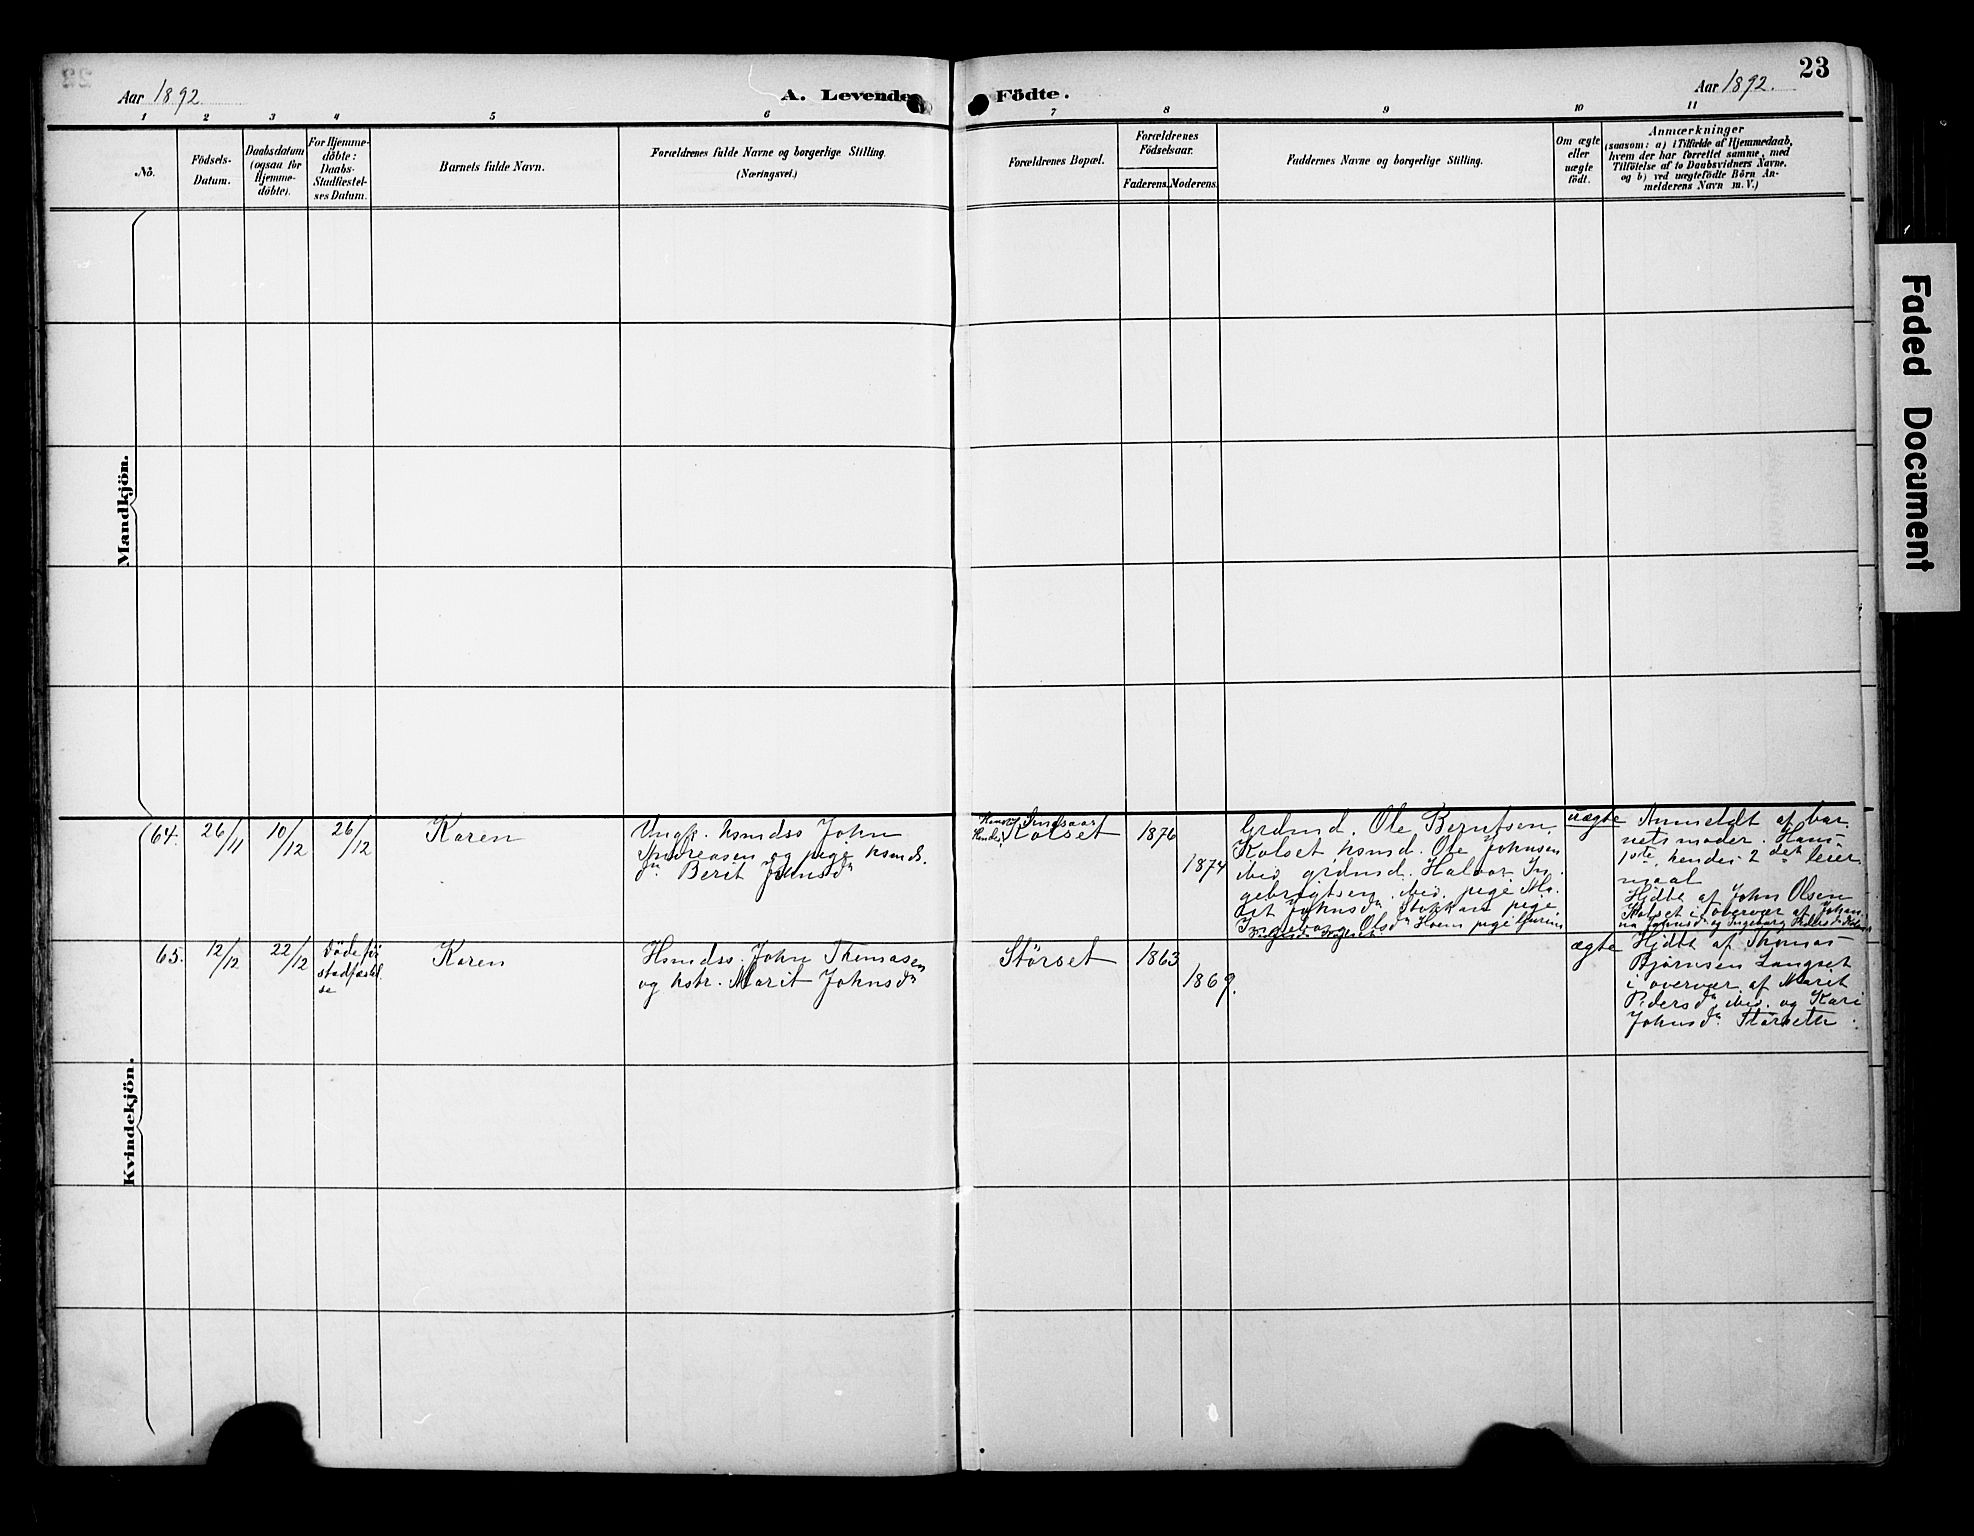 23
Aar 1892.
A. Levende Födte.
Aar 1892.
1 2 3 4 5 6 7 8 9 10 11
No.
Födsels-
Datum.
Daabsdatum
(ogsaa for
Hjemme-
döbte).
For Hjemme-
döbte:
Daabs-
Stadfæstel-
ses Datum.
Barnets fulde Navn.
Forældrenes fulde Navne og borgerlige Stilling.
(Næringsvei.)
Forældrenes Bopæl.
Forældrenes
Födselsaar.
Faderens. Moderens.
Faddernes Navne og borgerlige Stilling.
Om ægte
eller
uægte
födt.
Anmærkninger
(saasom: a) i Tilfælde af Hjemmedaab,
hvem der har forrettet samme, med
Tilföielse af to Daabsvidners Navne,
og b) ved uægtefödte Börn An-
melderens Navn m. V.)
Mandkjön.
Kvindekjön.
64.
26/11
10/12
26/12
Karen
Ungk. hsmdss John
Andreasen og pige hsmds.
dr. Berit Johnsdr
Singsaas
Hendes Kolset
1876
1874
Grdmd. Ole Berntsen
Kolset hsmd. Ole Johnsen
ibid grdmd. Halvor In-
gebrigtsen ibid. pige Ma-
rit Johnsdr Stokkan pige
Ingeborg Olsdr Hoem pige
uægte
Anmeldt af bar
nets moder. Hans
1ste, hendes 2det leier
maal
Hjdbt af John Olsen
Kolset i overvær af Johan-
na Johnsdr og Ingeborg
65.
12/12
22/12
Döde för
stadfæstel
se
Karen
Hsmdss. John Thomasen
og hstr. Marit Johnsdr
Störset
1863
1869.
ægte
Hjdbt af Thomas
Bjørnsen Langset
i overvær af Marit
Pedersdr ibid. og Kari
Johnsdr Størseth.
Faded Document